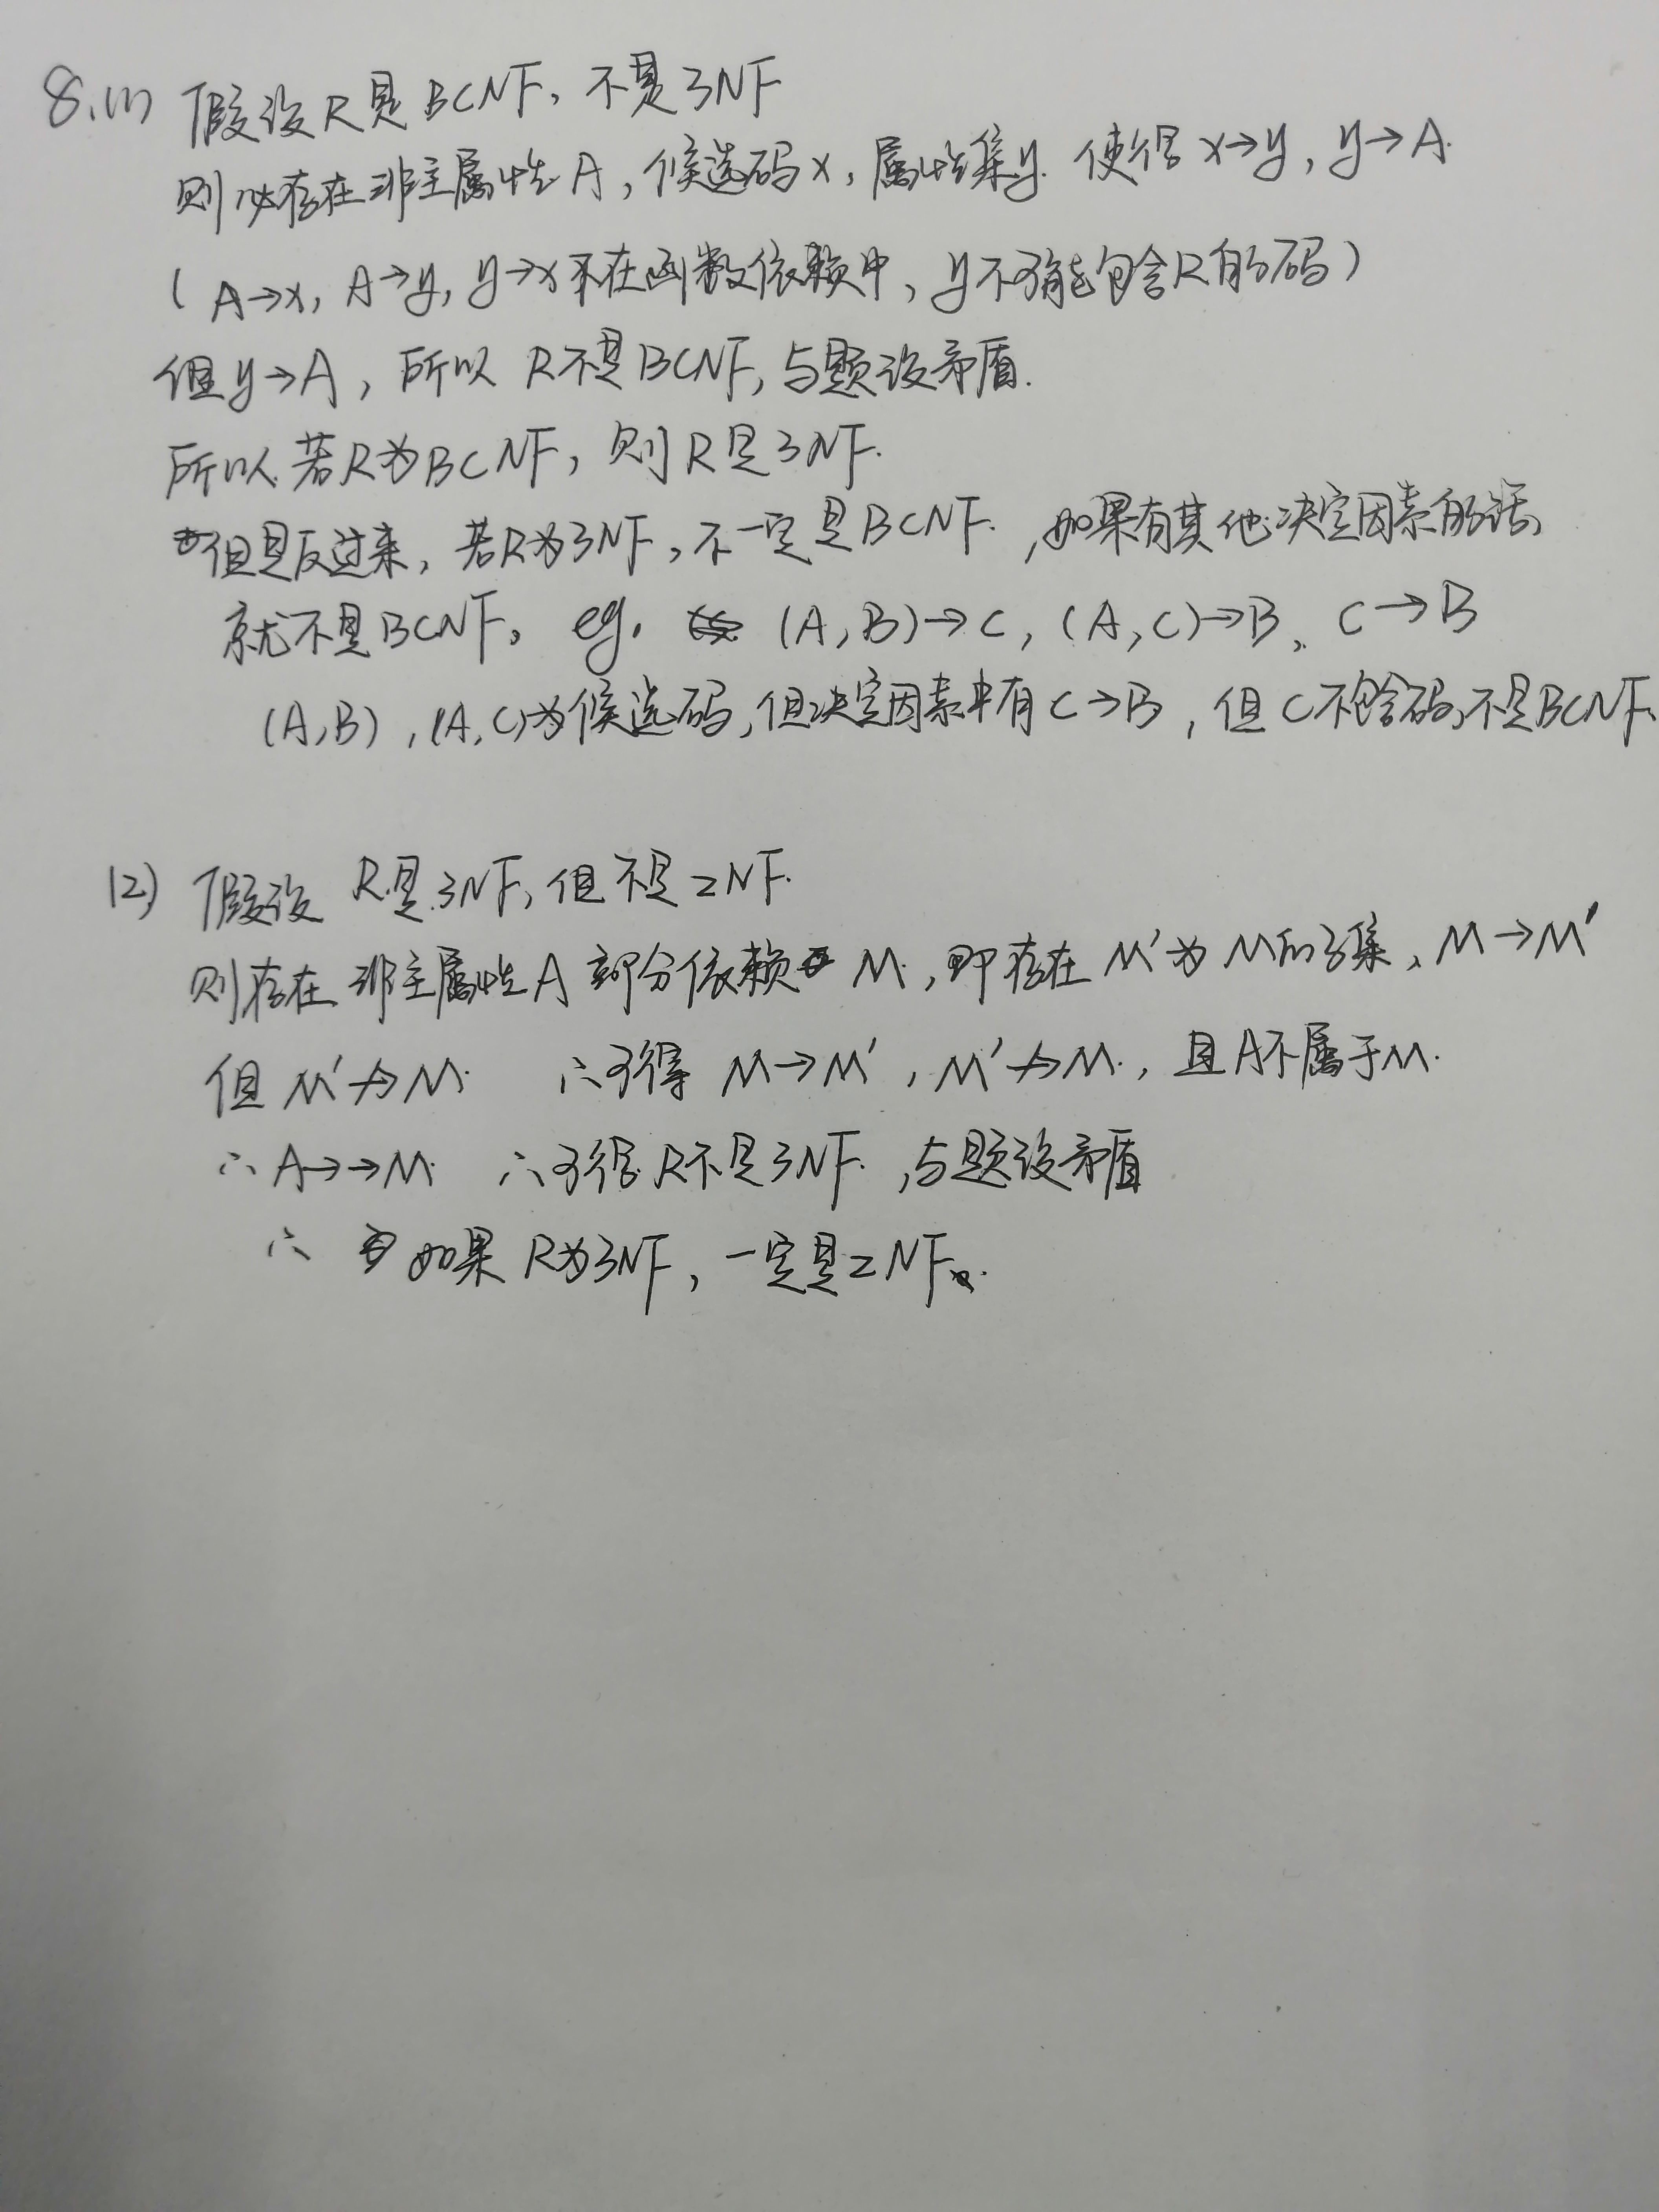 8.(1) 假设R是BCNF，不是3NF
则必存在非主属性A，候选码x，属性集y. 使得x→y，y→A.
（A→x，A→y，y→x不在函数依赖中，y不可能包含R的码）
但y→A，所以 R不是BCNF，与题设矛盾.
所以若R为BCNF，则R是3NF.
但是反过来，若R为3NF，不一定是BCNF.，如果有其他决定因素的话，
就不是BCNF。eg. (A,B)→C，(A,C)→B、C→B
(A,B)，(A,C)为候选码，但决定因素中有C→B，但C不包含码，不是BCNF.
(2) 假设 R是3NF，但不是2NF.
则存在非主属性A部分依赖 M，即存在M'为M的子集，M→M'
但M'↛M. ∴可得 M→M'，M'↛M.，且A不属于M.
∴A→→M. ∴可得R不是3NF.，与题设矛盾
∴ 如果R为3NF，一定是2NF.